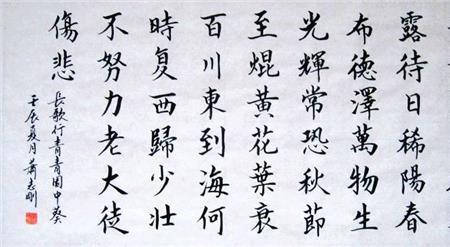 露待日稀陽春
布德澤萬物生
光輝常恐秋節
至焜黃花葉衰
百川東到海何
時复西歸少壯
不努力老大徒
傷悲
長歌行青青園中葵
壬辰夏月蕭志剛